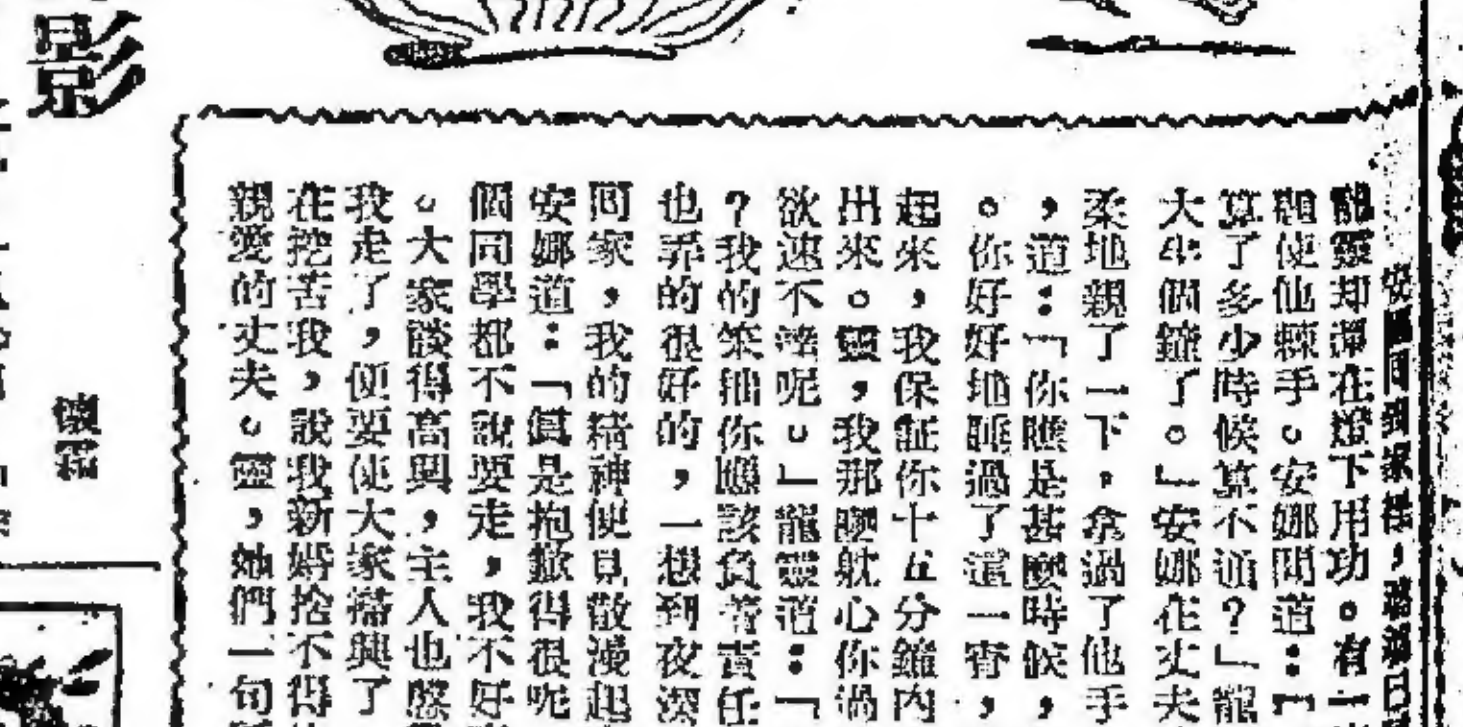 安娜回到家裡，
龍靈却還在燈下用功。有一
題使他棘手。安娜問道：「
算了多少時候算不通？」龍
大半個鐘了。」安娜在丈夫
柔地親了一下，拿過了他手
，道：「你瞧是甚麼時候，
。你好好地睡過了這一宵，
起來，我保証你十五分鐘內
出來。靈，我那麼躭心你過
欲速不達呢。」龍靈道：「
？我的笨拙你應該負着責任
也弄的很好的，一想到夜深
同家，我的精神便見散漫起
安娜道：「眞是抱歉得很呢
個同學都不說要走，我不好
。大家談得高興，主人也慇
我走了，便要使大家掃興了
在挖苦我，說我新婚捨不得
親愛的丈夫。靈，她們一句
影
懷霜